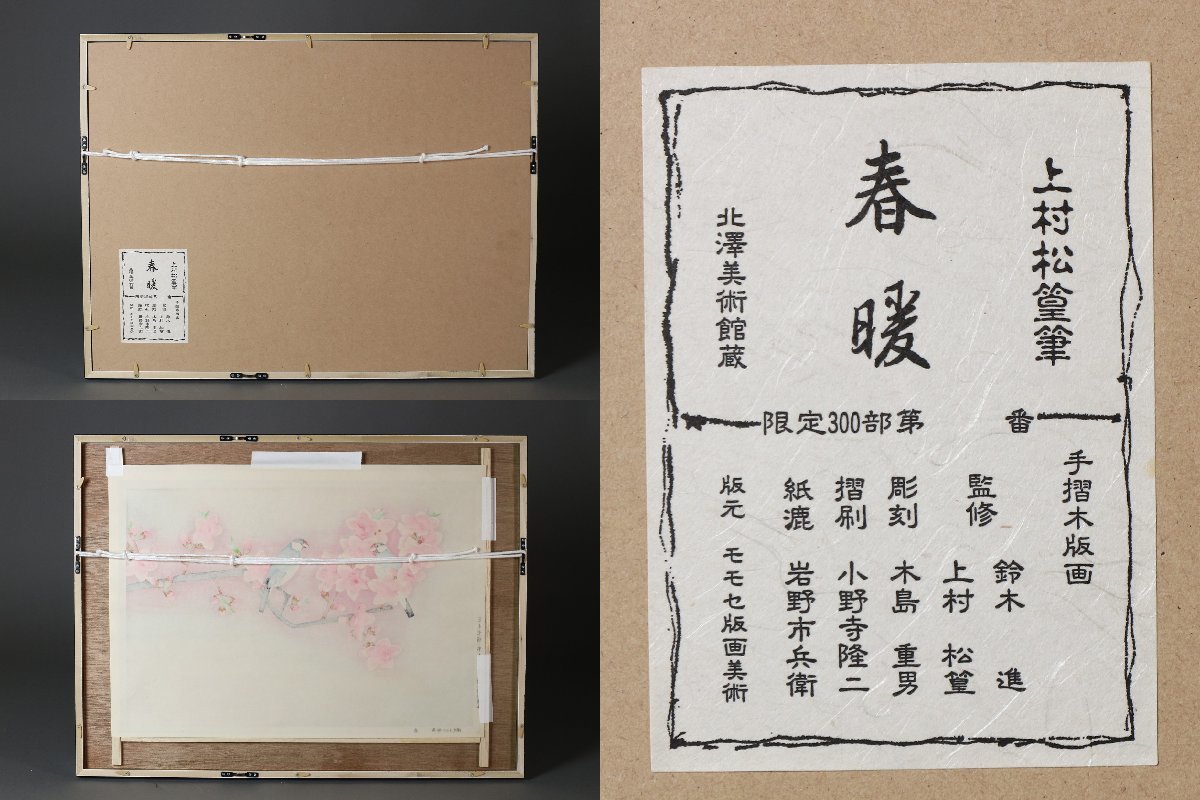 上村松篁筆
春暖
北澤美術館蔵
限定300部第　番
手摺木版画
監修　鈴木　進
上村　松篁
彫刻　木島　重男
摺刷　小野寺隆二
紙漉　岩野市兵衛
版元　モモセ版画美術